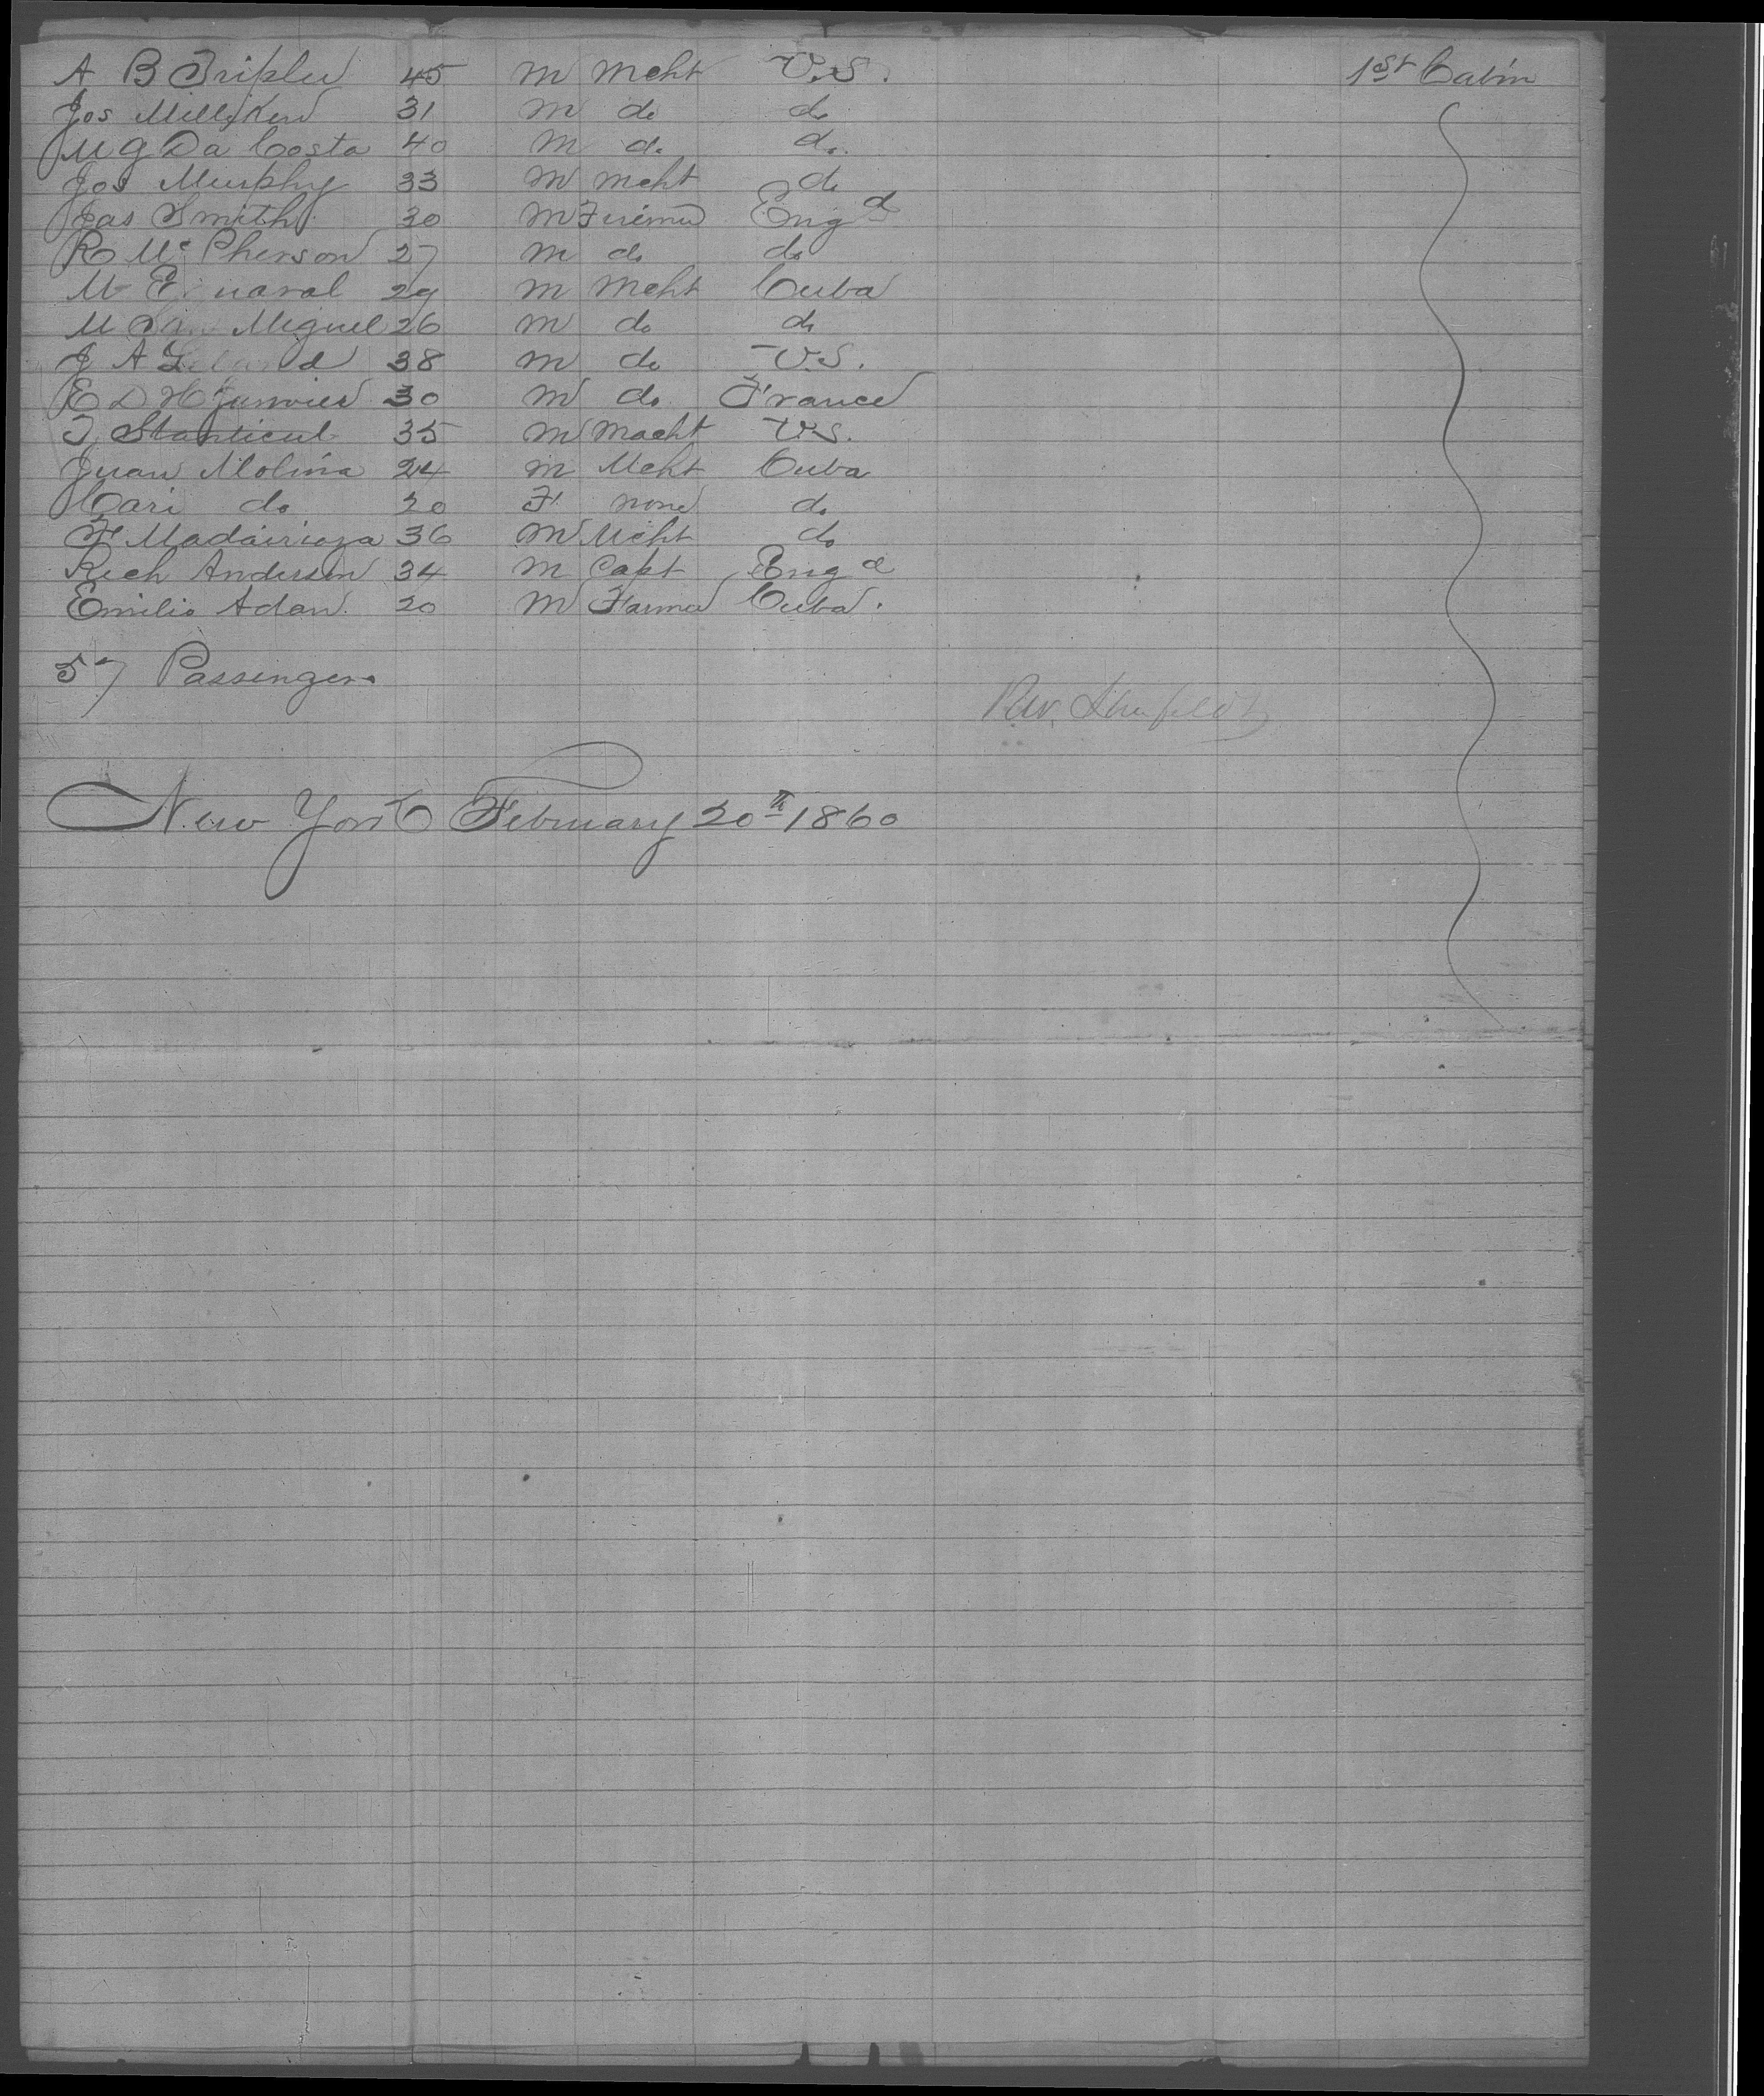 A B Tripler 45 M Mcht U.S. 1st Cabin
Jos Milliken 31 M do do
M G Da Costa 40 M do do.
Jos Murphy 33 M Mcht do
Jas Smith 30 M Engd
R McPherson 27 M do do
M E 29 M Mcht Cuba
M San Miguel 26 M do do
J A 38 M do U.S.
E D 30 M do France
35 M Macht U.S.
Juan Molina 24 M Mcht Cuba
Cari do 20 F. none do
F Madairiaga 36 M Mcht do
Rich Anderson 34 M Capt Engd
Emilio Adan. 20 M Farmer Cuba.
57 Passengers
New York February 20th 1860